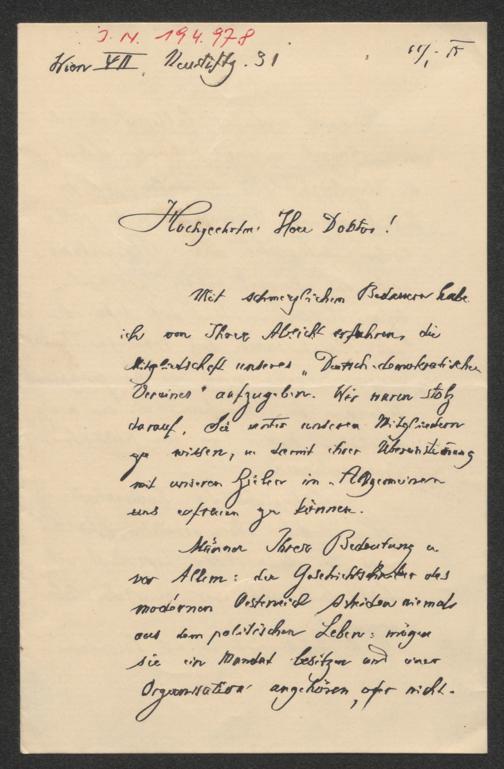 J. N. 194.978
Wien VII, Neustiftg. 31
Hochgeehrter Herr Doktor!
Mit schmerzlichem Bedauern habe
ich von Ihrer Absicht erfahren, die
Mitgliedschaft unseres „Deutsch-demokratischen
Vereines" aufzugeben. Wir waren stolz
darauf, Sie unter unseren Mitgliedern
zu wissen, u. damit Ihrer Übereinstimmung
mit unseren Zielen im Allgemeinen
uns erfreuen zu können.
Männer Ihrer Bedeutung u.
vor Allem: der Geschichtschreiber des
modernen Oesterreich scheiden niemals
aus dem politischen Leben: mögen
sie ein Mandat besitzen und einer
Organisation angehören, oder nicht.